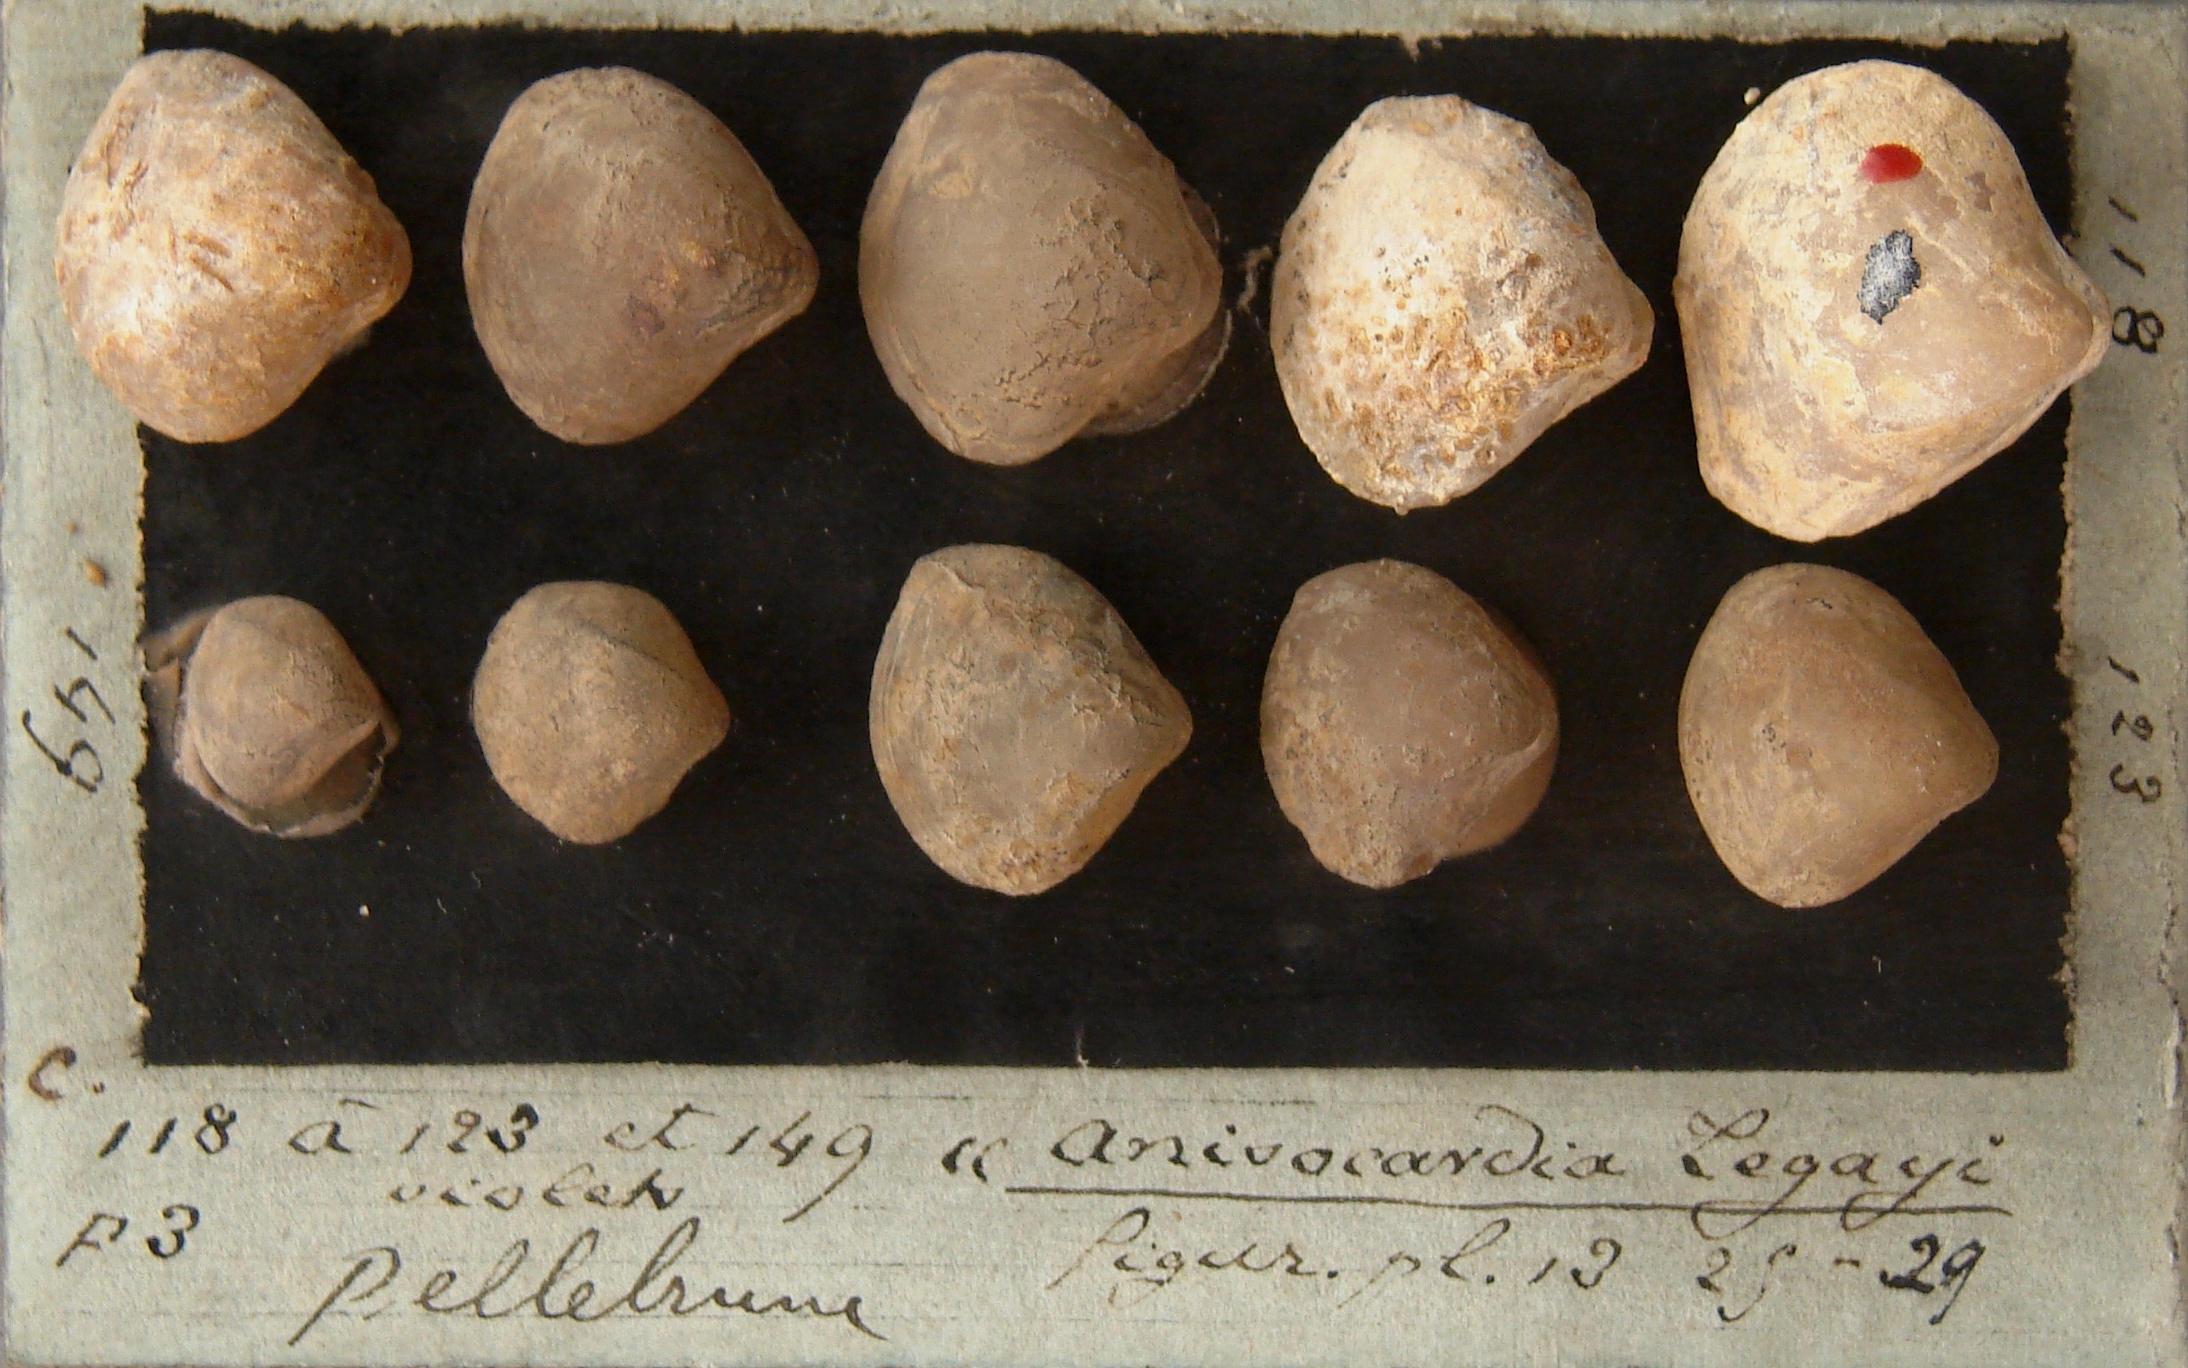 118
123
149
C.
118 à 123 et 149 « Anisocardia Legayi
violets
F3
figur. pl. 13 25 - 29
Pellebrune